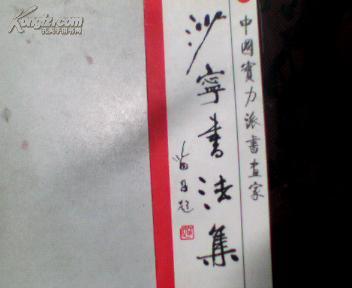 Kongfz.com
孔夫子旧书网
中國實力派書畫家
沙寧書法集